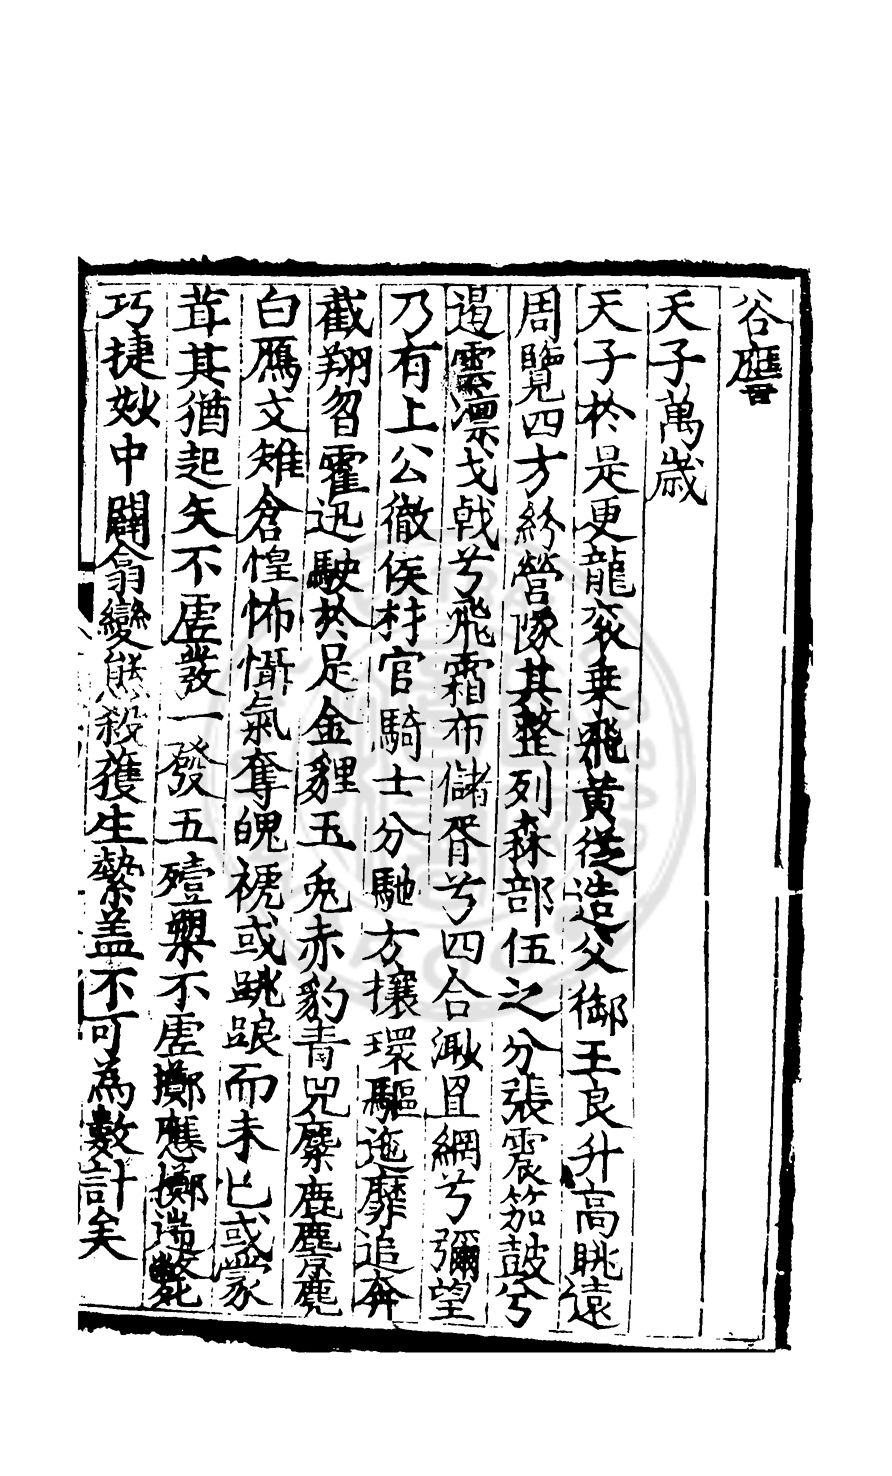 谷𢊍
天子萬歲
天子於是更龍衮乗飛黃從造父御王良升高眺遠
周覽四方紛營隊其整列森部伍之分張震笳鼓兮
遏雲凛戈戟兮飛霜布儲胥兮四合漵罝網兮彌望
乃有上公徹侯材官騎士分馳方攘環驅迤靡追奔
截翔曶霍迅駛於足金貍玉兎赤豹青兕麋鹿麖麃
白鴈文雉倉惶怖慴氣奪魄褫或跳踉而未已或蒙
茸其猶起矢不虛發一發五殪槊不虛擲應擲端斃
巧捷妙中闢翕變態殺獲生縶盖不可為數計矣